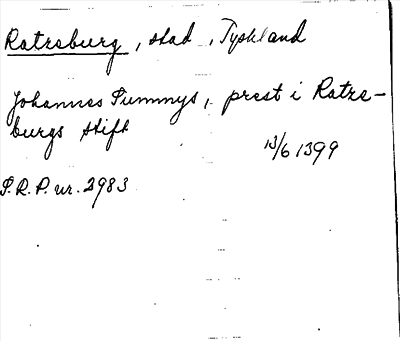 Ratzeburg, stad, Tyskland
Johannes Pummys, prest i Ratze-
burgs stift
13/6 1399
S.R.P. nr. 2983